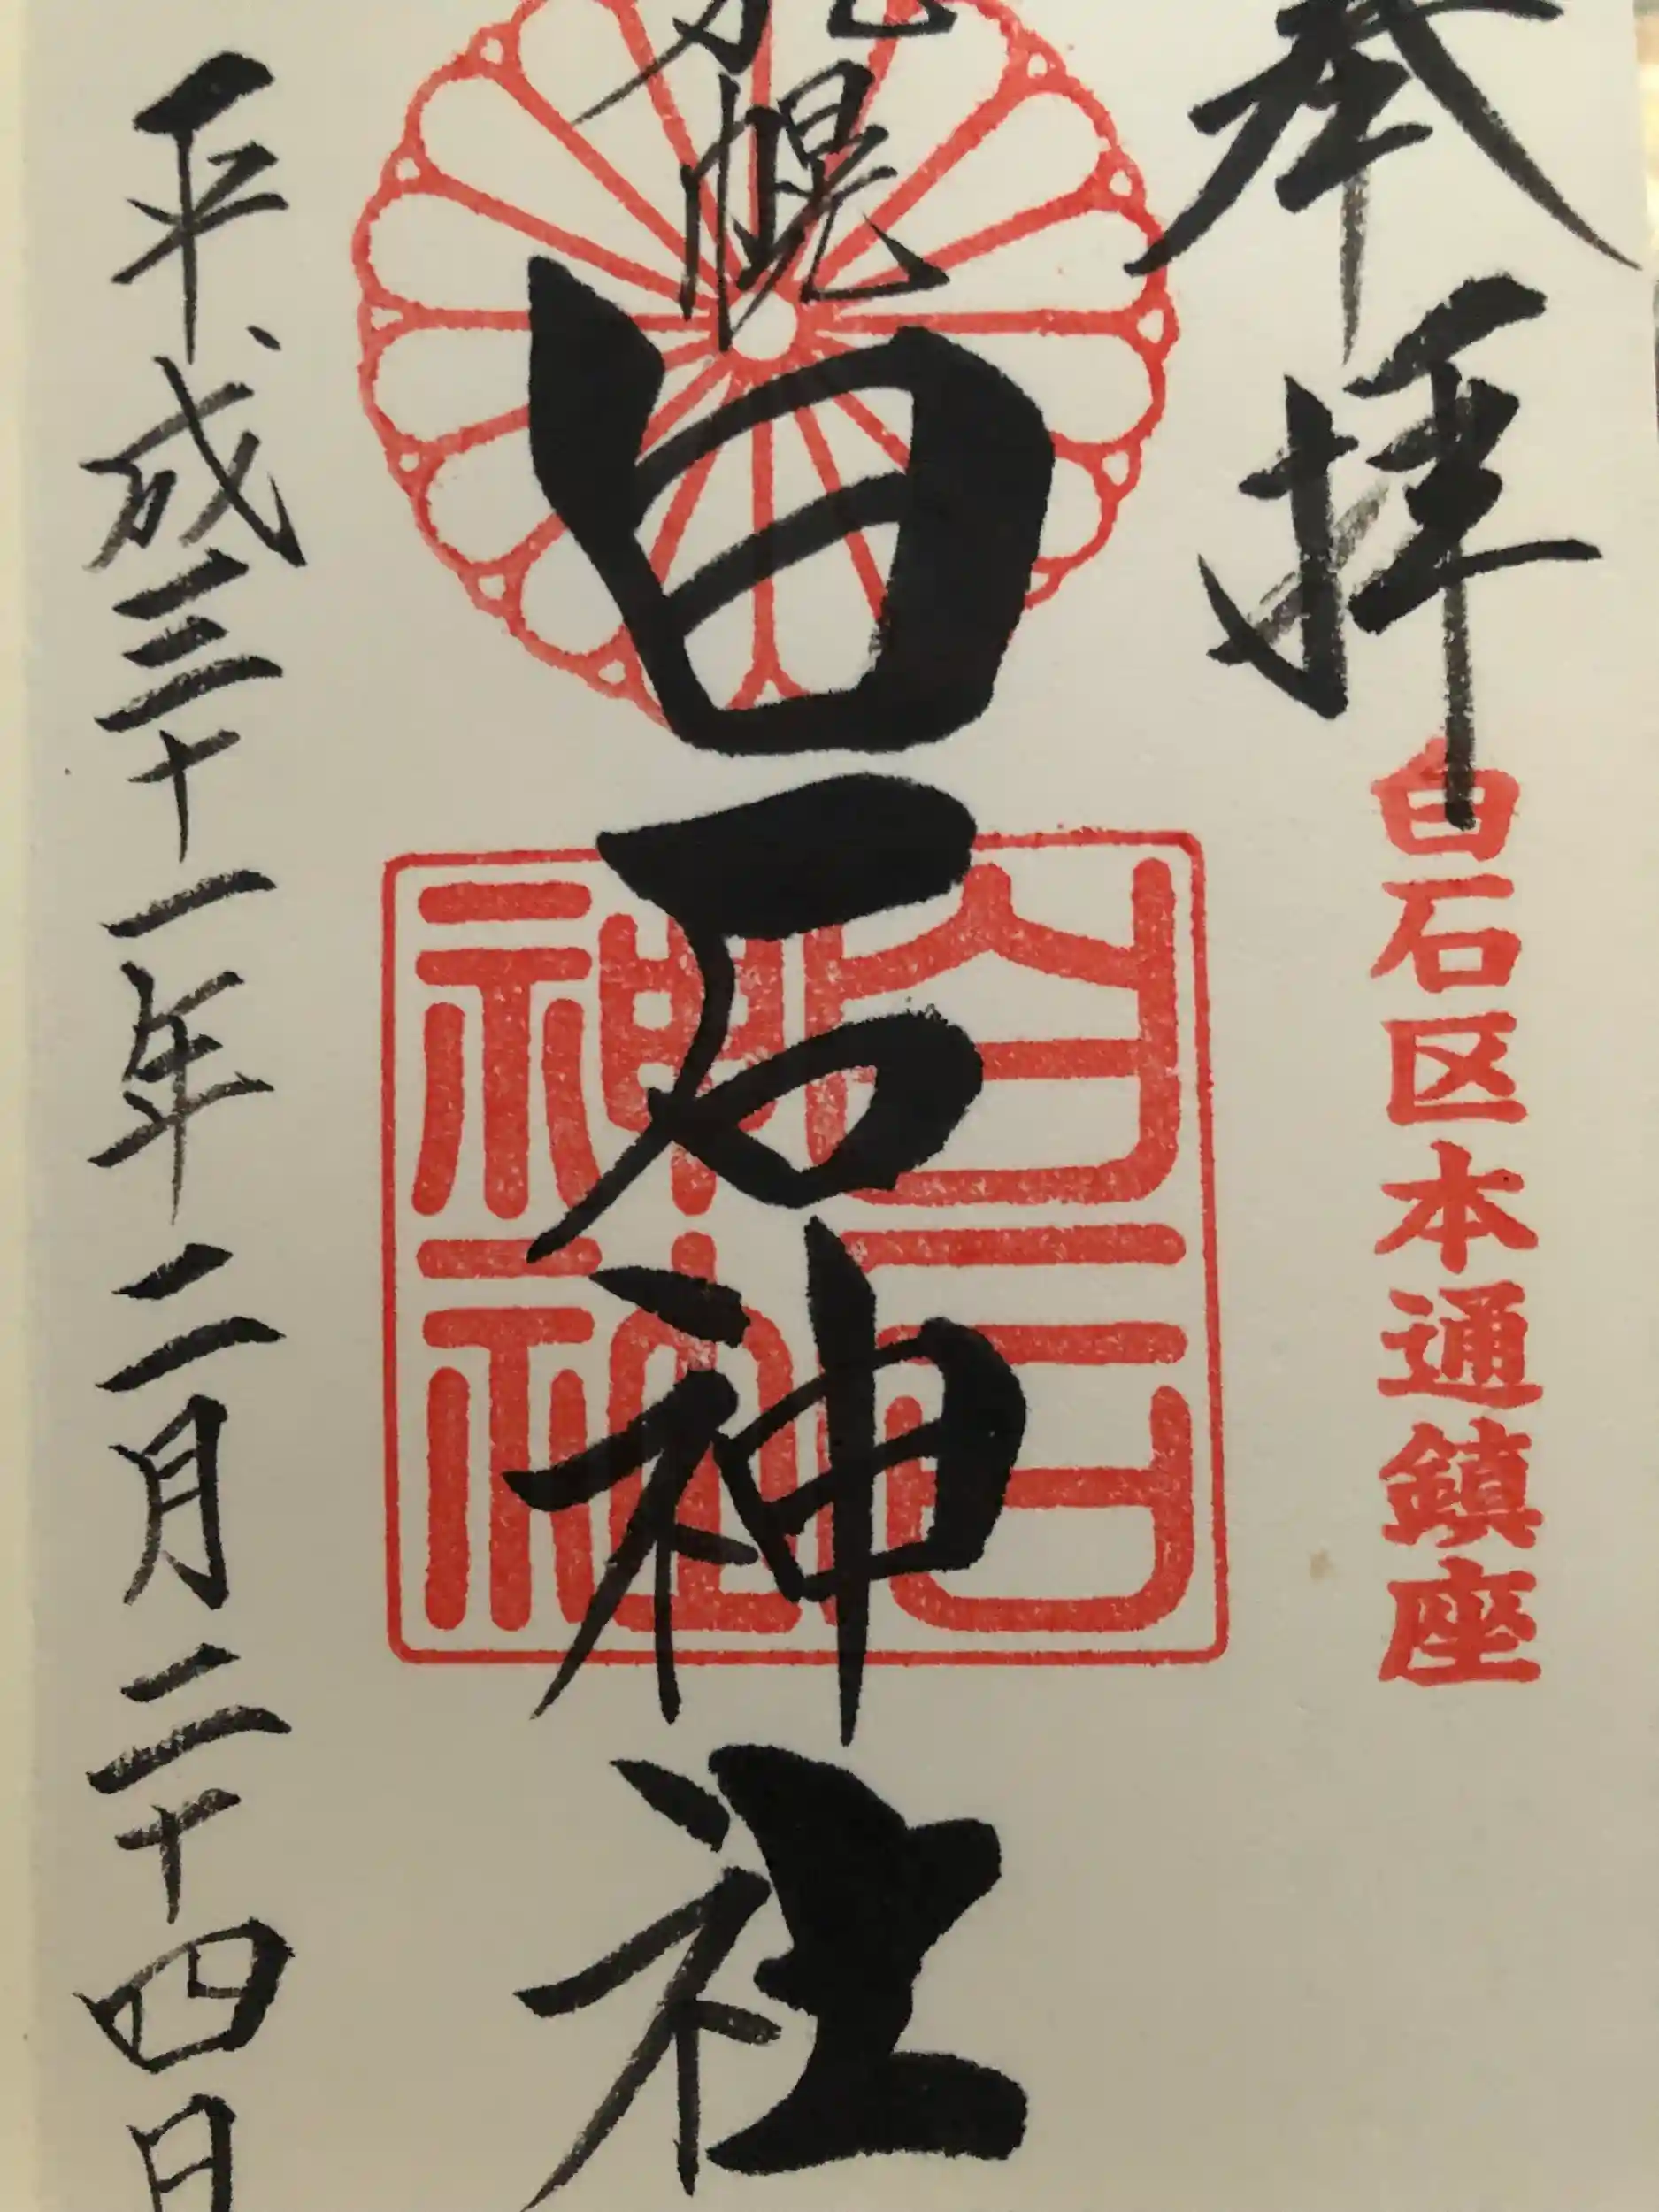 奉拝
白石区本通鎮座
札幌
白石神社
白石神社
平成三十一年二月二十四日